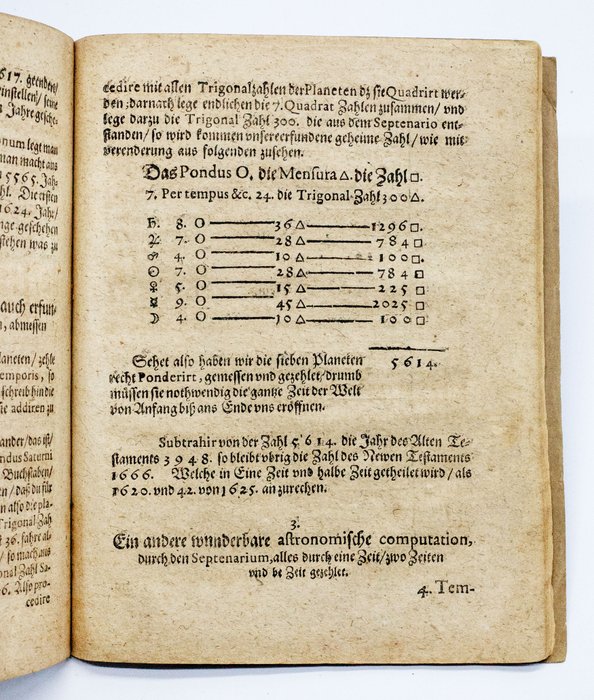 617. geenden/
einstellen/ seine
Jahre gesche-
onum legt man
man macht aus
5565. Jah-
hl. Die ersten
1624. Jahr/
nge geschehen
stehen was zu
auch erfun-
n, abmessen
laneten/ zehle
emporis, so
schreib hin die
ie addiren zu
ander/ das ist/
ndus Saturni
Buchstaben/
en/ daß du für
en also die pla-
Trigonal Zah
t 36. fahre al-
/ so mach aus
onal Zahl Sa-
6. Also pro-
cedire
cedire mit allen Trigonalzahlen der Planeten dz sie Quadrirt wer-
den/ darnach lege endlichen die 7. Quadrat Zahlen zusammen/ vnd
lege darzu die Trigonal Zahl 300. die aus dem Septenario ent-
standen/ so wird kommen vnsere erfundene geheime Zahl/ wie mit
verenderung aus folgenden zusehen.
Das Pondus O, die Mensura △. die Zahl □.
7. Per tempus &c. 24. die Trigonal-Zahl 300 △.
♄. 8. O 36 △ 1296 □.
♃. 7. O 28 △ 784 □.
♂. 4. O 10 △ 100 □.
☉. 7. O 28 △ 784 □
♀. 5. O 15 △ 225 □
☿. 9. O 45 △ 2025 □
☽. 4. O 10 △ 100 □
5614.
Sehet also haben wir die sieben Planeten
recht Ponderirt, gemessen vnd gezehlet/ drumb
müssen sie nothwendig die gantze Zeit der Welt
von Anfang biß ans Ende vns eröffnen.
Subtrahir von der Zahl 5614. die Jahr des Alten Te-
staments 3948. so bleibt vbrig die Zahl des Newen Testaments
1666. Welche in Eine Zeit vnd halbe Zeit getheilet wird/ als
1620. vnd 42. von 1625. an zurechen.
3.
Ein andere wunderbare astronomische computation,
durch den Septenarium, alles durch eine Zeit/ zwo Zeiten
vnd be Zeit gezehlet.
4. Tem-